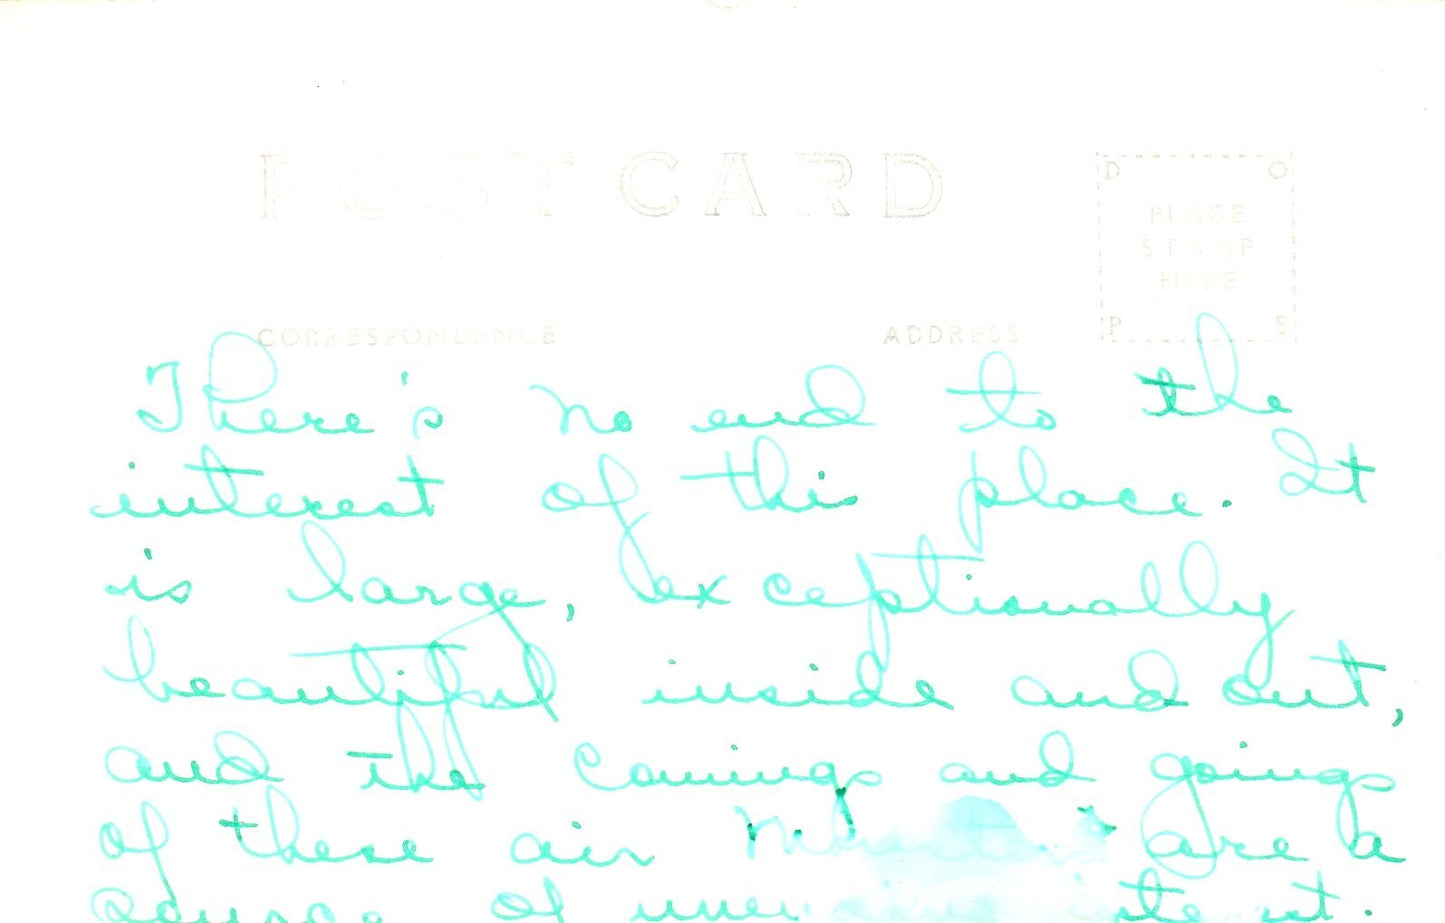 POST CARD
D O
PLACE
STAMP
HERE
P S
CORRESPONDENCE ADDRESS
There's no end to the
interest of this place. It
is large, exceptionally
beautiful inside and out,
and the comings and goings
of these air are a
source of